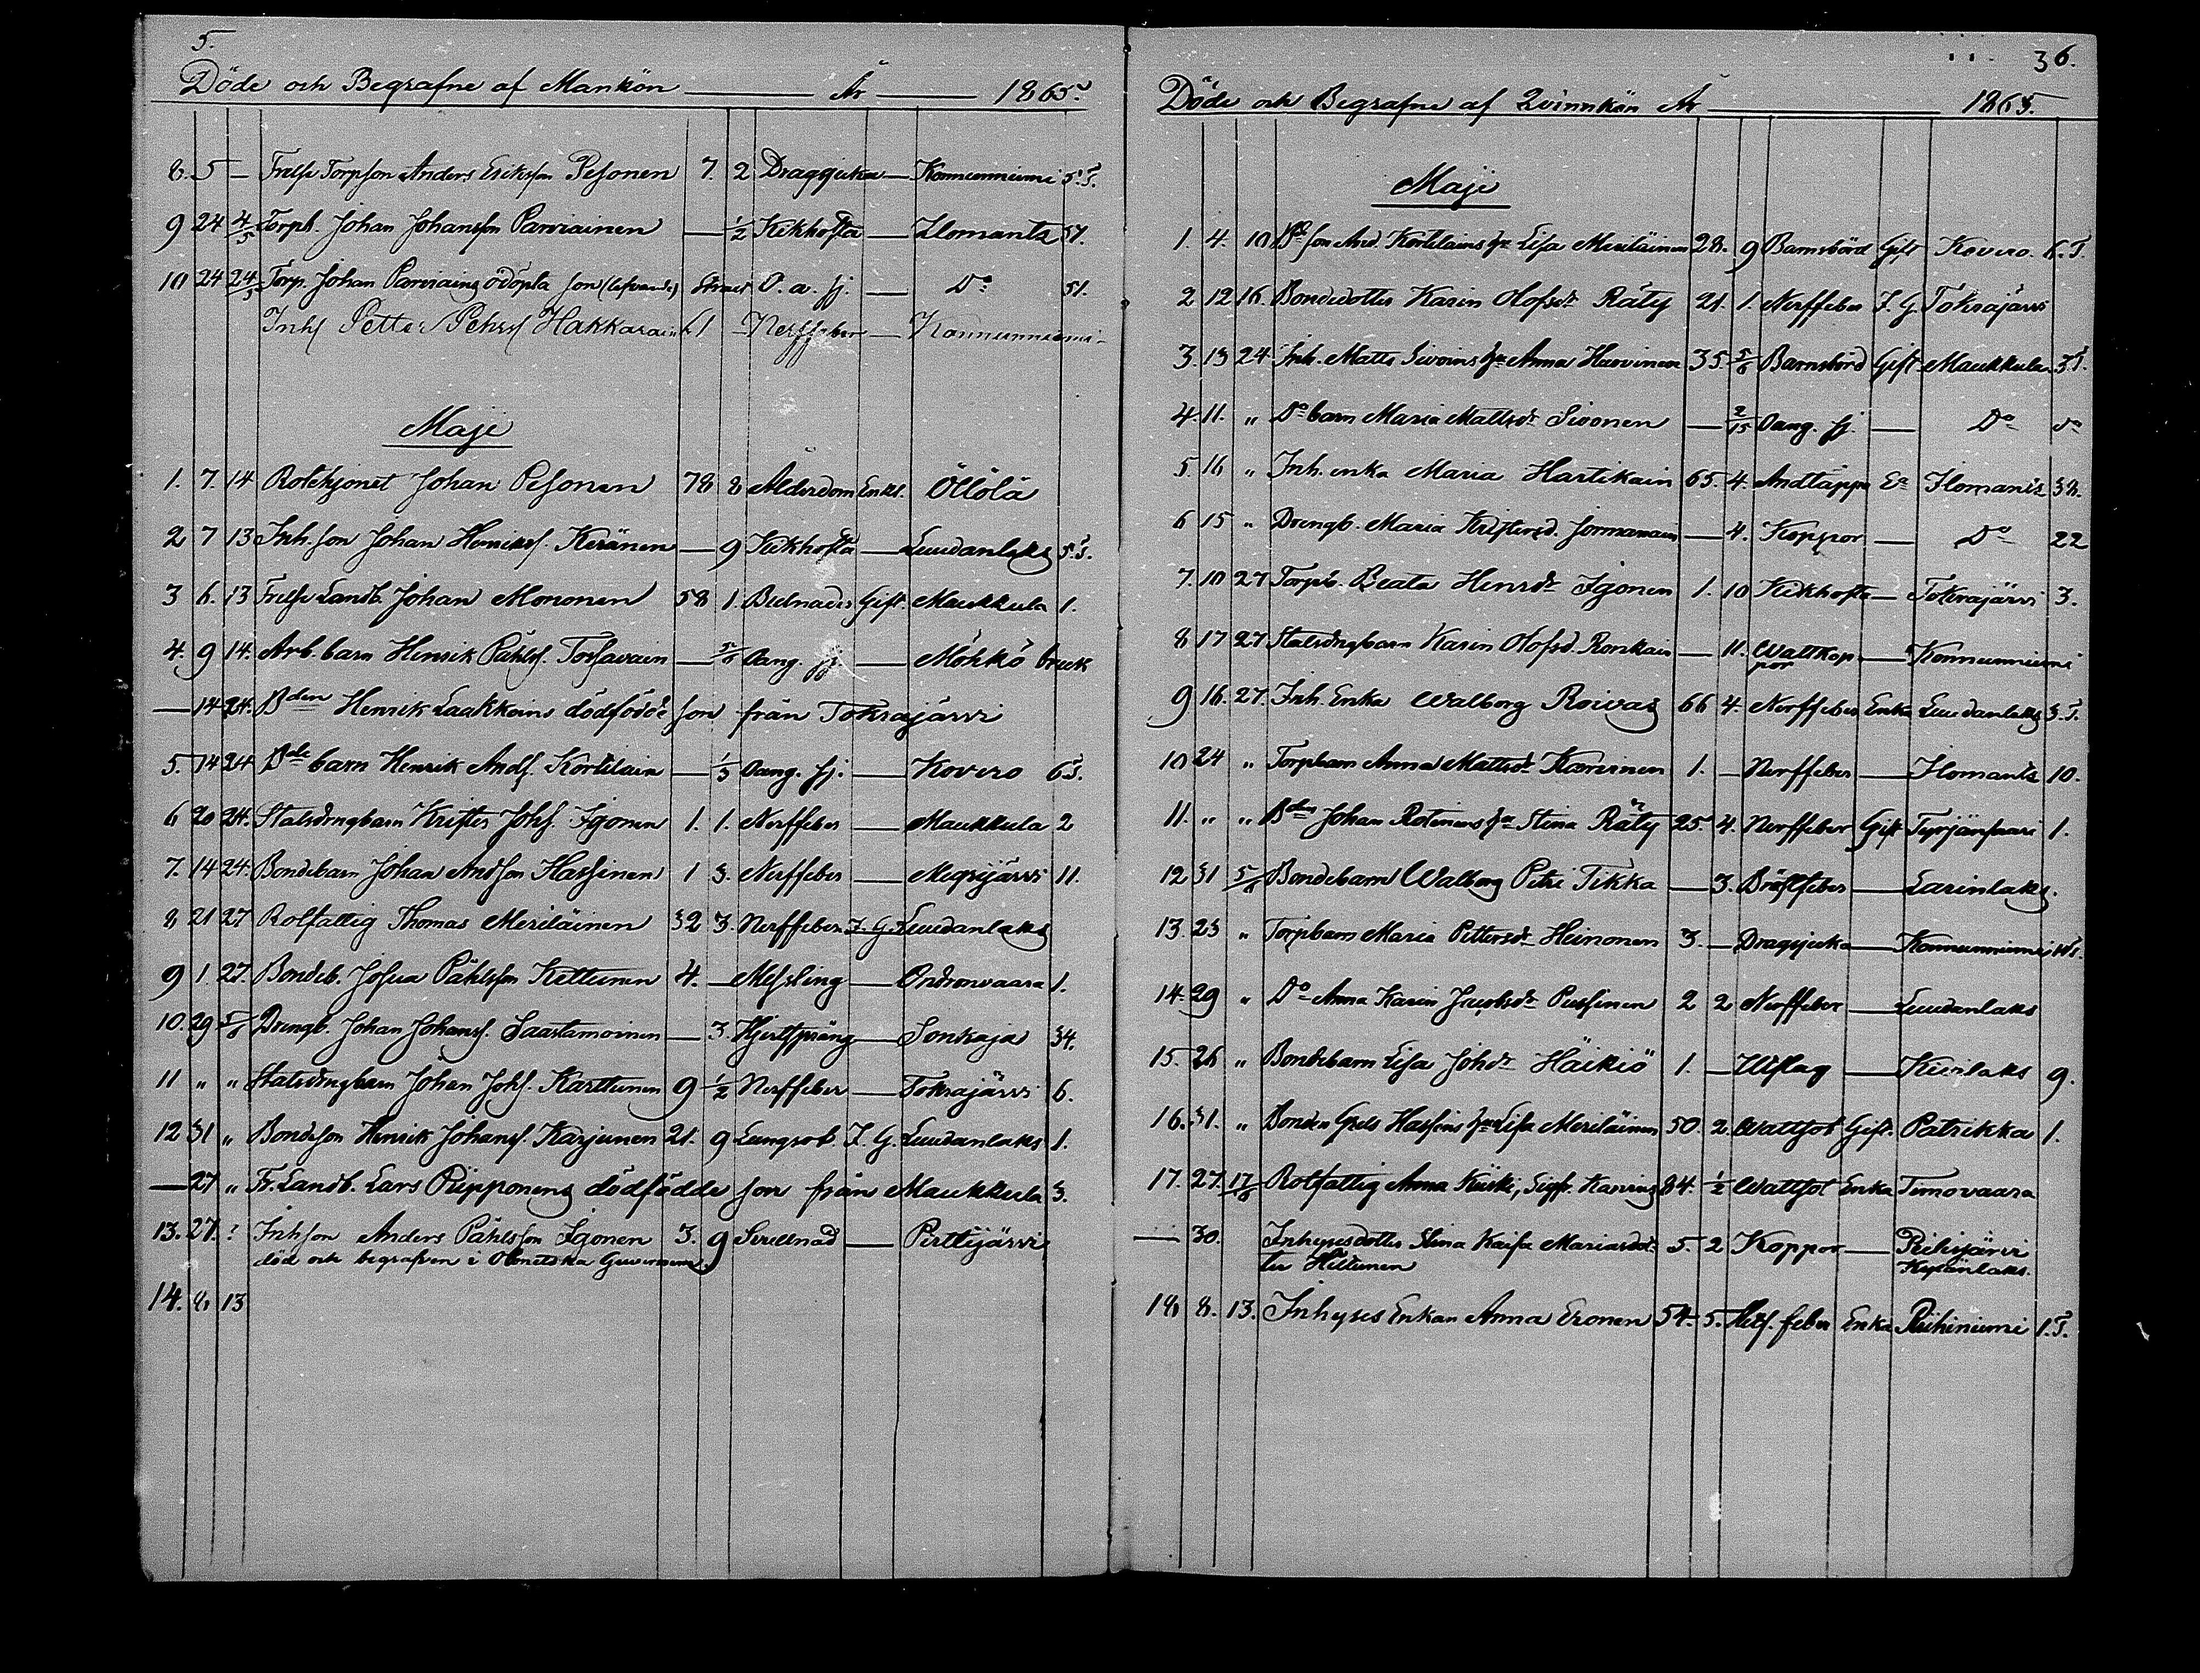 5.
Döde och Begrafne af Mankön År 1865.
8. 5 — Frelse Torpson Anders Eriksson Pesonen 7. 2 Dragsjuka — Konnunniemi 5.T.
9 24 4/5 Torpb. Johan Johansson Parviainen — 1/2 Kikhosta — Ilomants 51.
10 24 24/5 Torp. Johan Parviains odöpta son (lefvande) O. a. sj. — Do 51.
Inhs Petter Pehrs. Hakkarain 61 — Nerffeber — Konnunniemi
Maje
1. 7. 14 Rotehjonet Johan Pesonen 78 8 Ålderdom Enkl. Öllölä
2 7 13 Inh. son Johan Henrikss. Keränen — 9 Kikhosta — Luudanlaks 5.T.
3 6. 13 Frelse Landb. Johan Mononen 58 1. Gift. Maukkula 1.
4. 9 14. Arb. barn Henrik Påhlss. Torsavain — 5/6 Oang. sj. — Möhkö bruk
— 14 24. Bden Henrik Laakkoins dödfödde son från Tokrajärvi
5. 14 24 Bde barn Henrik Ands. Kortelain — 1/3 Oang. sj. — Kovero 6T.
6 20 24. Statsdrngbarn Krister Johs. Igonen 1. 1. Nerffeber — Maukkula 2
7. 14 24. Bondebarn Johan Andsson Hassinen 1 3. Nerffeber — Megrijärvi 11.
8 21 27 Rotfattig Thomas Meriläinen 32 3. Nerffeber I. G. Luudanlaks
9 1. 27. Bondeb. Josua Påhlsson Kettunen 4. — Messling — Ontronvaara 1.
10. 29 5/6 Drengb. Johan Johanss. Saastamoinen — 3. Hjertsprång — Sonkaja 34.
11 " " Statsdrngbarn Johan Johs. Karttunen 9 1/2 Nerffeber — Tokrajärvi 6.
12 31 " Bondeson Henrik Johanss. Karjunen 21. 9 Lungsot. I. G. Luudanlaks 1.
— 27 " Fr. Landb. Lars Piipponens dödfödde son från Maukkula 3.
13. 27. ? Inhson Anders Påhlsson Igonen 3. 9 Svullnad — Perttijärvi
död och begrafven i Olonetska Guvernem.
14. 8 13
36.
Döde och Begrafne af Qvinnkön År 1865.
Maji
1. 4. 10 Bdeson And. Kortelains hu Lisa Meriläinen 28. 9 Barnsbörd Gift Kovero. 6.T.
2 12 16. Bondedotter Karin Olofsdr Räty 21. 1. Nerffeber I. G. Tokrajärvi
3. 13 24 Inh. Matts Sivoins hu Anna Harvinen 35. 5/6 Barnsbörd Gift. Maukkula 3T.
4. 11. " Do barn Maria Mattsdr Sivonen — 2/15 Oang. sj. — Do do
5. 16 " Inh. enka Maria Hartikain 65. 4. Andtäppa Ea Ilomants 38.
6 15 " Drengb. Maria Kristersd. Jormanain — 4. Koppor — Do 22
7. 10 27 Torpb. Beata Henrsdr Igonen 1. 10 Kikhosta — Tokrajärvi 3.
8 17 27 Statsdrngbarn Karin Olofsd. Ronkain — 11. Wattkop-por — Konnunniemi
9 16. 27. Inh. Enka Walborg Roivas 66 4. Nerffeber Enka Luudanlaks 3.T.
10 24 " Torpbarn Anna Mattsdr Karvinen 1. — Nerffeber — Ilomants 10.
11. " " Bdens Johan Rotinens hu Stina Räty 25. 4. Nerffeber Gift Tyrjänsaari 1.
12 31 5/6 Bondebarn Walborg Petri Tikka — 3. Bröstfeber — Larinlaks.
13. 23 " Torpbarn Maria Pettersdr Heinonen 3. — Dragsjuka — Konnunniemi
14. 29 " Do Anna Karin Jacobsdr Pussinen 2 2 Nerffeber — Luudanlaks
15. 26 " Bondebarn Lisa Johdr Häikiö 1. — Utslag — Kivilaks 9.
16. 31. " Bonden Grels Hassins hu Lisa Meriläinen 50. 2. Wattsot Gift. Patrikka 1.
17. 27. 17/6 Rotfattig Anna Kiiski, 84. 1/2 Wattsot Enka Timovaara
— 30. Inhysesdotter Stina Kaisa Mariasdot- 5. 2 Koppor — Riihijärvi
ter Hiltunen
18 8. 13. Inhyses Enkan Anna Eronen 54 5. feber Enka Riihiniemi 1.T.